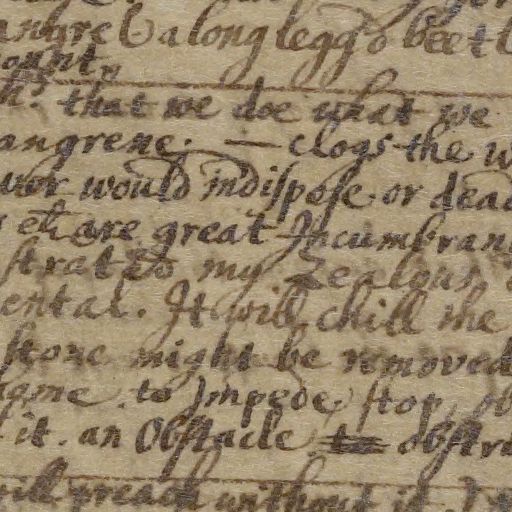 a long legg'd beetl
ount
that we doe what we
angrene. — clogs the w
would indispose or dead
are great Incumbran
strat to my Zealous
ental. It will chill the
stone might be removed
ame. to Impede, stop, ob
it. an Obstacle obstr
will preach without it.